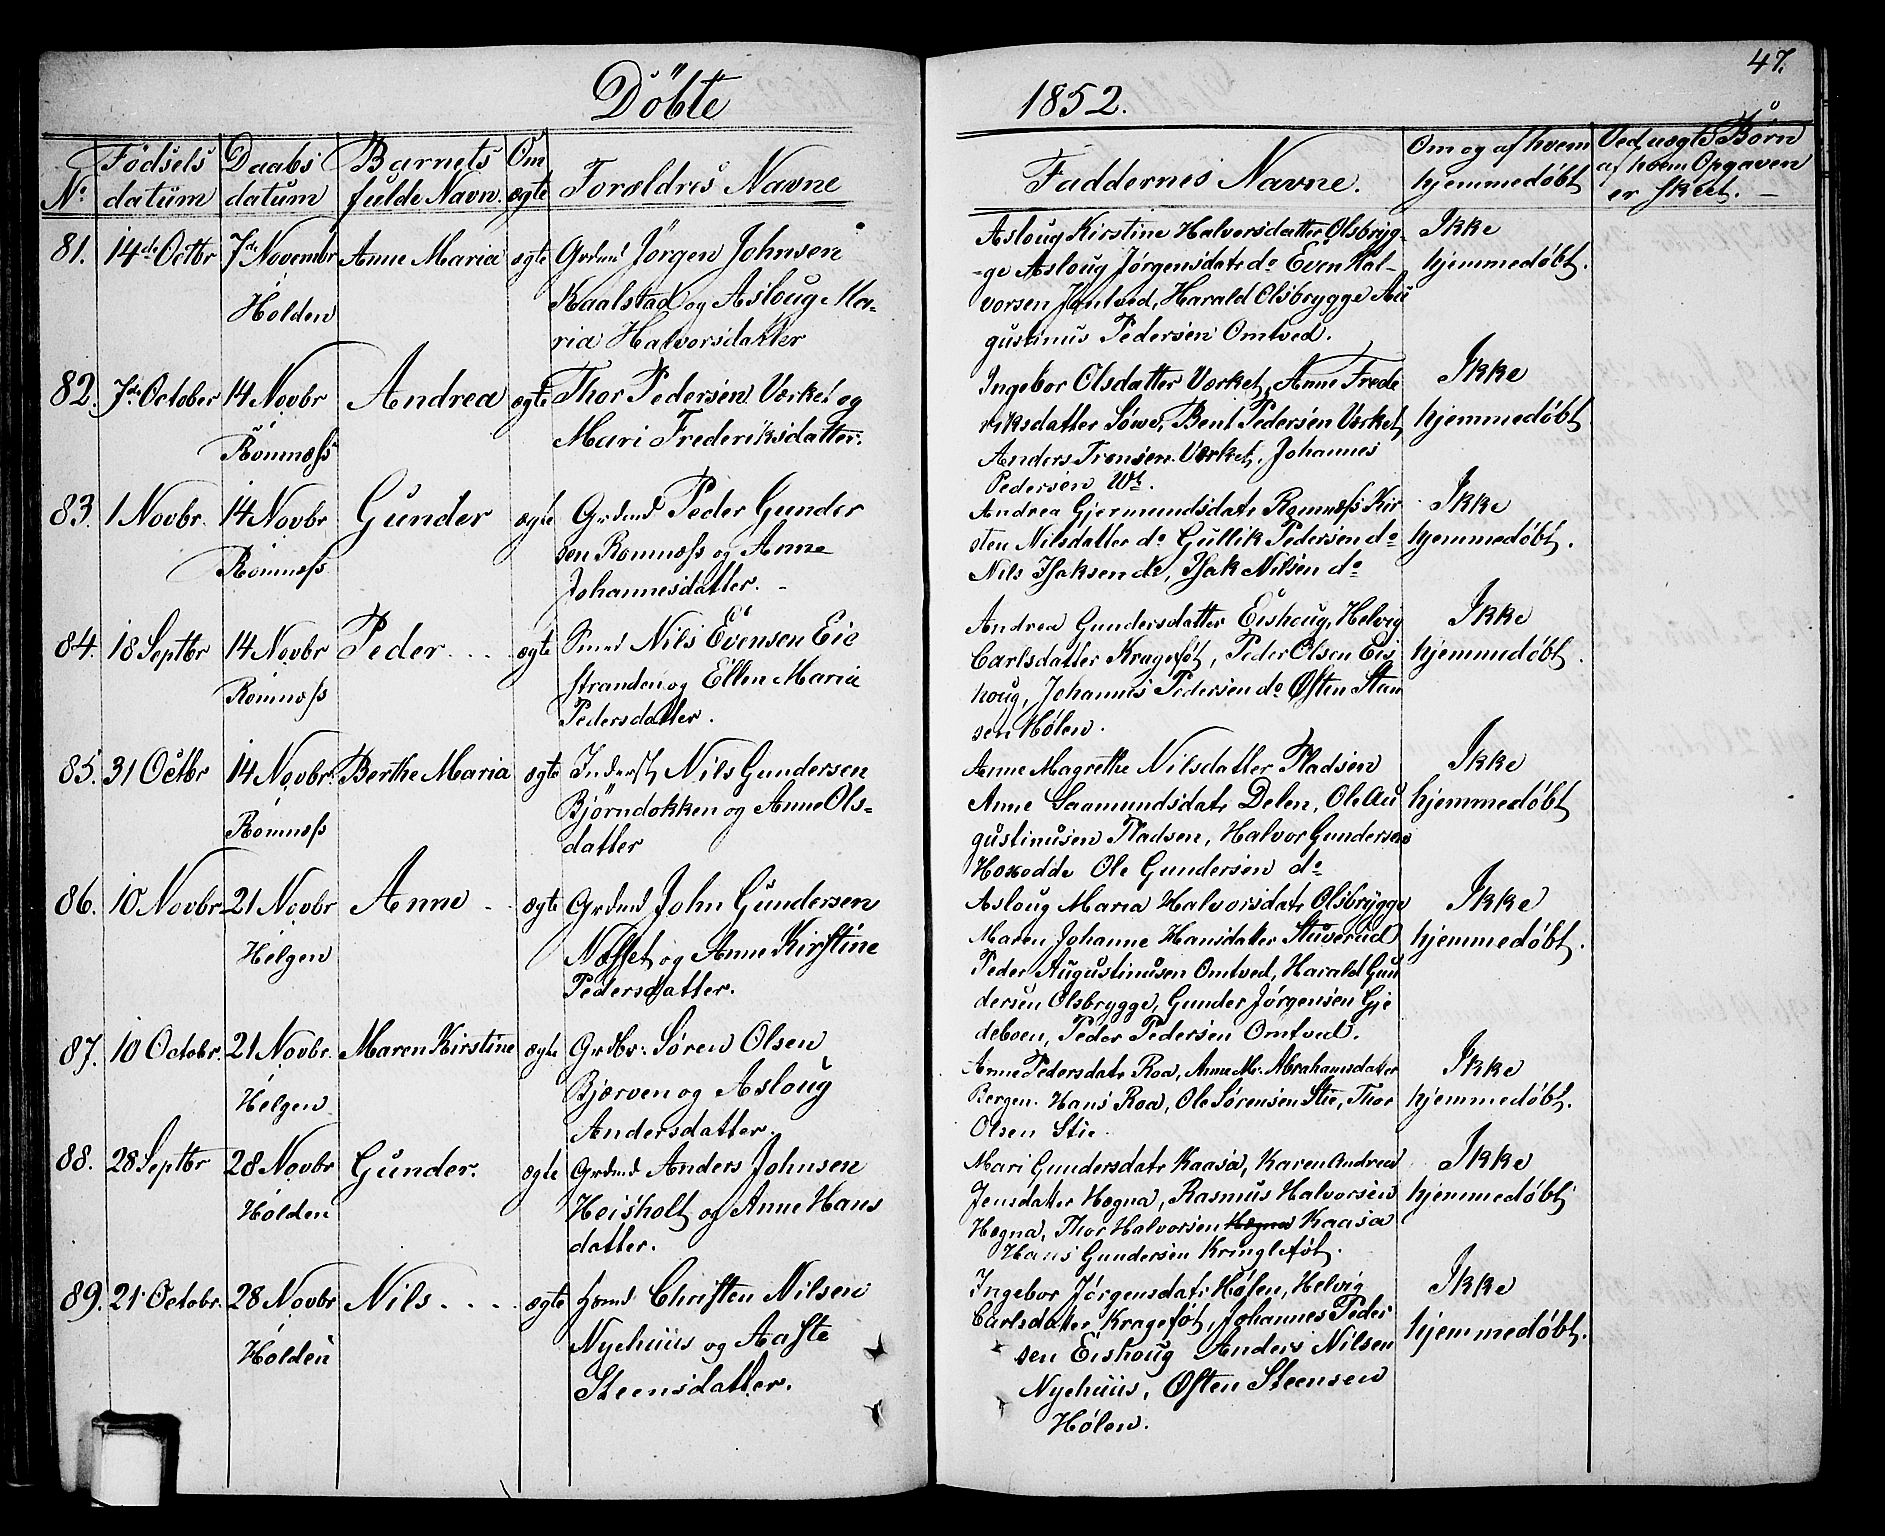 47.
Döbte 1852.
No. Fødsels datum Daabs datum Barnets fulde Navn. Om ægte Forældres Navne Faddernes Navne. Om og af hvem hjemmedøbt Ved uægte Børn af hvem Opgaven er skeet. -
81. 14de Octbr 7de Novembr Holden Anne Maria ægte Grdmd Jørgen Johnsen
Kaalstad og Asloug Ma-
ria Halvorsdatter
Asloug Kirstine Halvorsdatter Olsbryg-
ge Asloug Jørgensdatr do Even Hal-
vorsen Omtved, Harald Olsbrygge Au
gustinus Pedersen Omtved.
Ikke
hjemmedøbt.
82. 7de October 14 Novbr Romnæss Andrea ægte Thor Pedersen Værket og
Mari Frederiksdatter.
Ingebor Olsdatter Værket, Anne Frede
riksdatter Søwe, Bent Pedersen Værket,
Anders Tronsen Værket, Johannes
Pedersen
Ikke
hjemmedøbt
83. 1 Novbr. 14 Novbr Romnæss Gunder ægte Grdmd Peder Gunder
sen Romnæss og Anne
Johannesdatter. -
Andrea Gjermundsdatr Romnæss Kir
sten Nilsdatter do Gullik Pedersen do
Nils Isaksen do, Isak Nilsen do
Ikke
hjemmedøbt.
84. 18 Septbr 14 Novbr Romnæss Peder ægte Nils Evensen Eie
stranden og Ellen Maria
Pedersdatter.
Andrea Gundersdatter Eishoug, Helvig
Carlsdatter Kragefot, Peder Olsen Eis
houg, Johannes Pedersen do Østen Stan
sen Hølen.
Ikke
hjemmedøbt.
85. 31 Octbr 14 Novbr. Romnæss Berthe Maria ægte Inderst Nils Gundersen
Bjørndokken og Anne Ols-
datter
Anne Magrethe Nilsdatter Pladsen
Anne Saamundsdatr Delen, Ole Au
gustinusen Pladsen, Halvor Gundersen
Ole Gundersen do
Ikke
hjemmedøbt
86. 10 Novbr 21 Novbr Helgen Anne ægte Grdmd John Gundersen
Næsset og Anne Kirstine
Pedersdatter.
Asloug Maria Halvorsdatr Olsbrygge
Maren Johanne Hansdatter Stuverud
Peder Augustinusen Omtved, Harald Gun
dersen Olsbrygge, Gunder Jørgensen Gje
deboen, Peder Pedersen Omtved.
Ikke
hjemmedøbt.
87. 10 Octobr. 21 Novbr. Helgen Maren Kirstine ægte Grdbr. Søren Olsen
Bjerven og Asloug
Andersdatter.
Anne Pedersdatr Roa, Anne M. Abrahamsdatter
Bergen. Hans Roa, Ole Sørensen Stie, Thor
Olsen Stie
Ikke
hjemmedøbt.
88. 28 Septbr 28 Novbr Holden Gunder. ægte Grdmd Anders Johnsen
Heisholt og Anne Hans
datter.
Mari Gundersdatr Kaasa, Karen Andrea
Jensdatter Hegna, Rasmus Halvorsen
Hegna, Thor Halvorsen Hegna Kaasa
Hans Gundersen Kringlefot.
Ikke
hjemmedøbt
89. 21 Octobr. 28 Novbr Holden Nils ægte Christen Nilsen
Nyehuus og Aaste
Steensdatter.
Ingebor Jørgensdatr Hølen, Helvig
Carlsdatter Kragefot, Johannes Peder
sen Eishoug Anders Nilsen
Nyehuus, Østen Steensen
Hølen.
Ikke
hjemmedøbt.